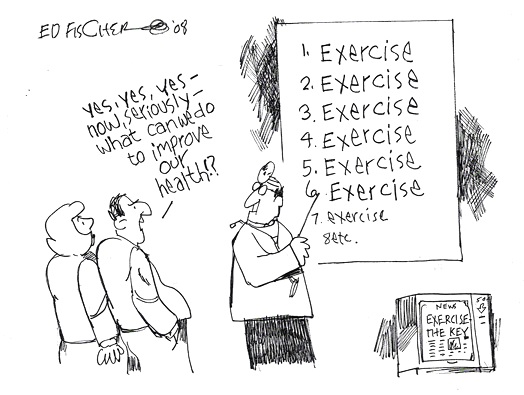 ED FISCHER '08
yes, yes, yes –
now, seriously –
what can we do
to improve
our
health!?
1. Exercise
2. Exercise
3. Exercise
4. Exercise
5. Exercise
6. Exercise
7. exercise
8 etc.
NEWS
EXERCISE
THE KEY